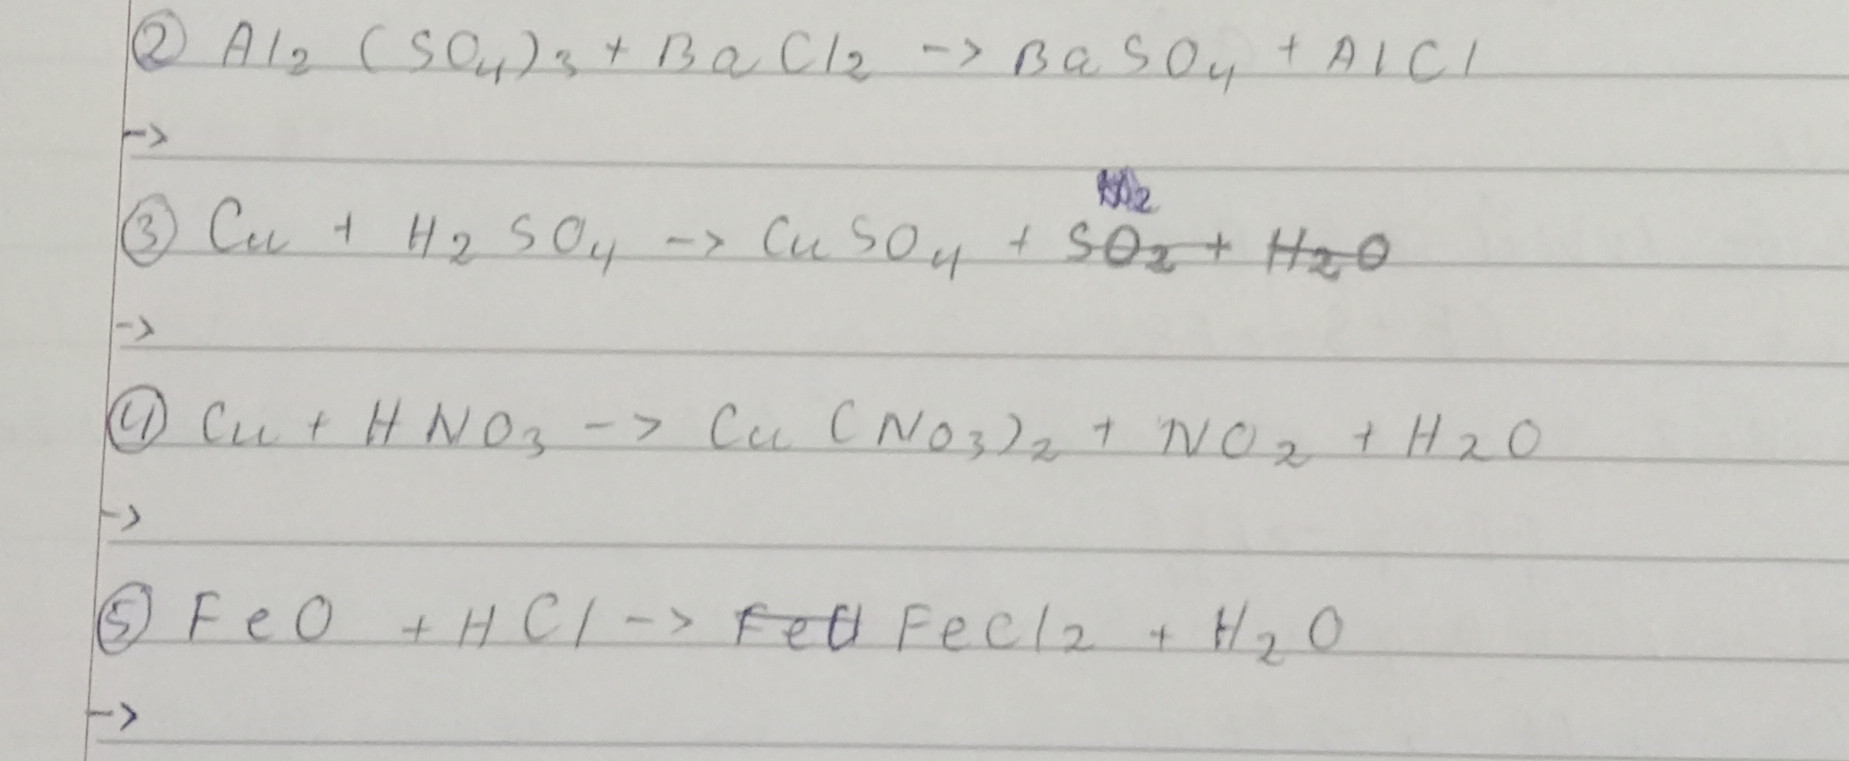 ② Al2 (SO4)3 + BaCl2 -> BaSO4 + AlCl
->
③ Cu + H2SO4 -> CuSO4 + SO2 + H2O
->
④ Cu + HNO3 -> Cu(NO3)2 + NO2 + H2O
->
⑤ FeO + HCl -> FeCl2 + H2O
->